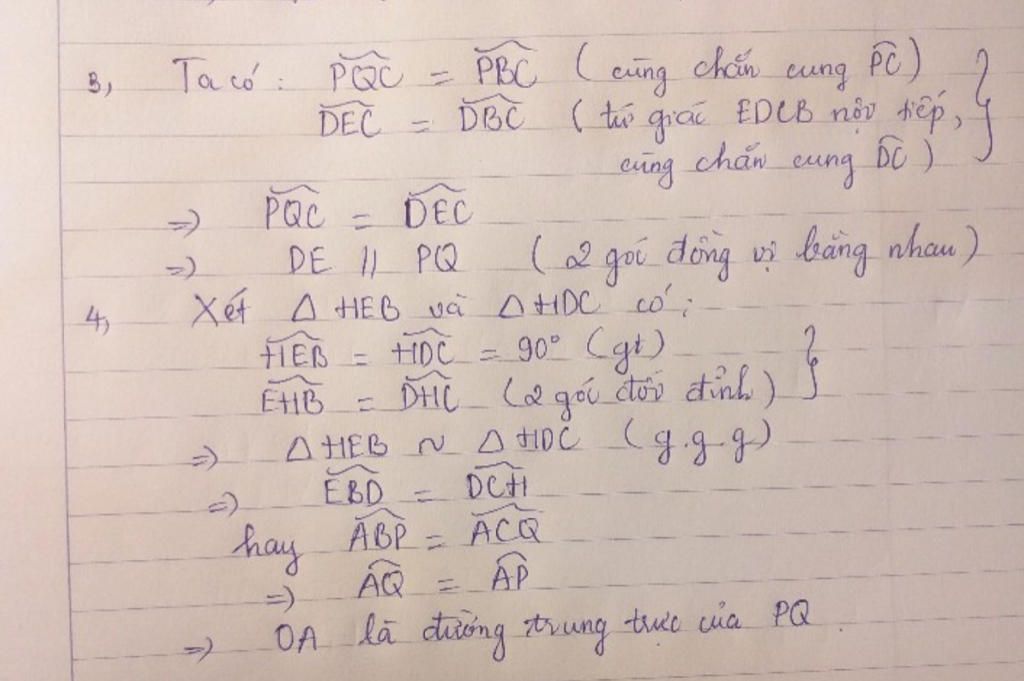 3, Ta có: PQC = PBC (cùng chắn cung PC)
DEC = DBC (tứ giác EDCB nội tiếp,
cùng chắn cung DC)
=) PQC = DEC
=) DE // PQ (2 góc đồng vị bằng nhau)
4, Xét △ HEB và △ HDC có:
HEB = HDC = 90° (gt)
EHB = DHC (2 góc đối đỉnh)
=) △ HEB ~ △ HDC (g.g.g)
=) EBD = DCH
hay ABP = ACQ
=) AQ = AP
=) OA là đường trung trực của PQ.